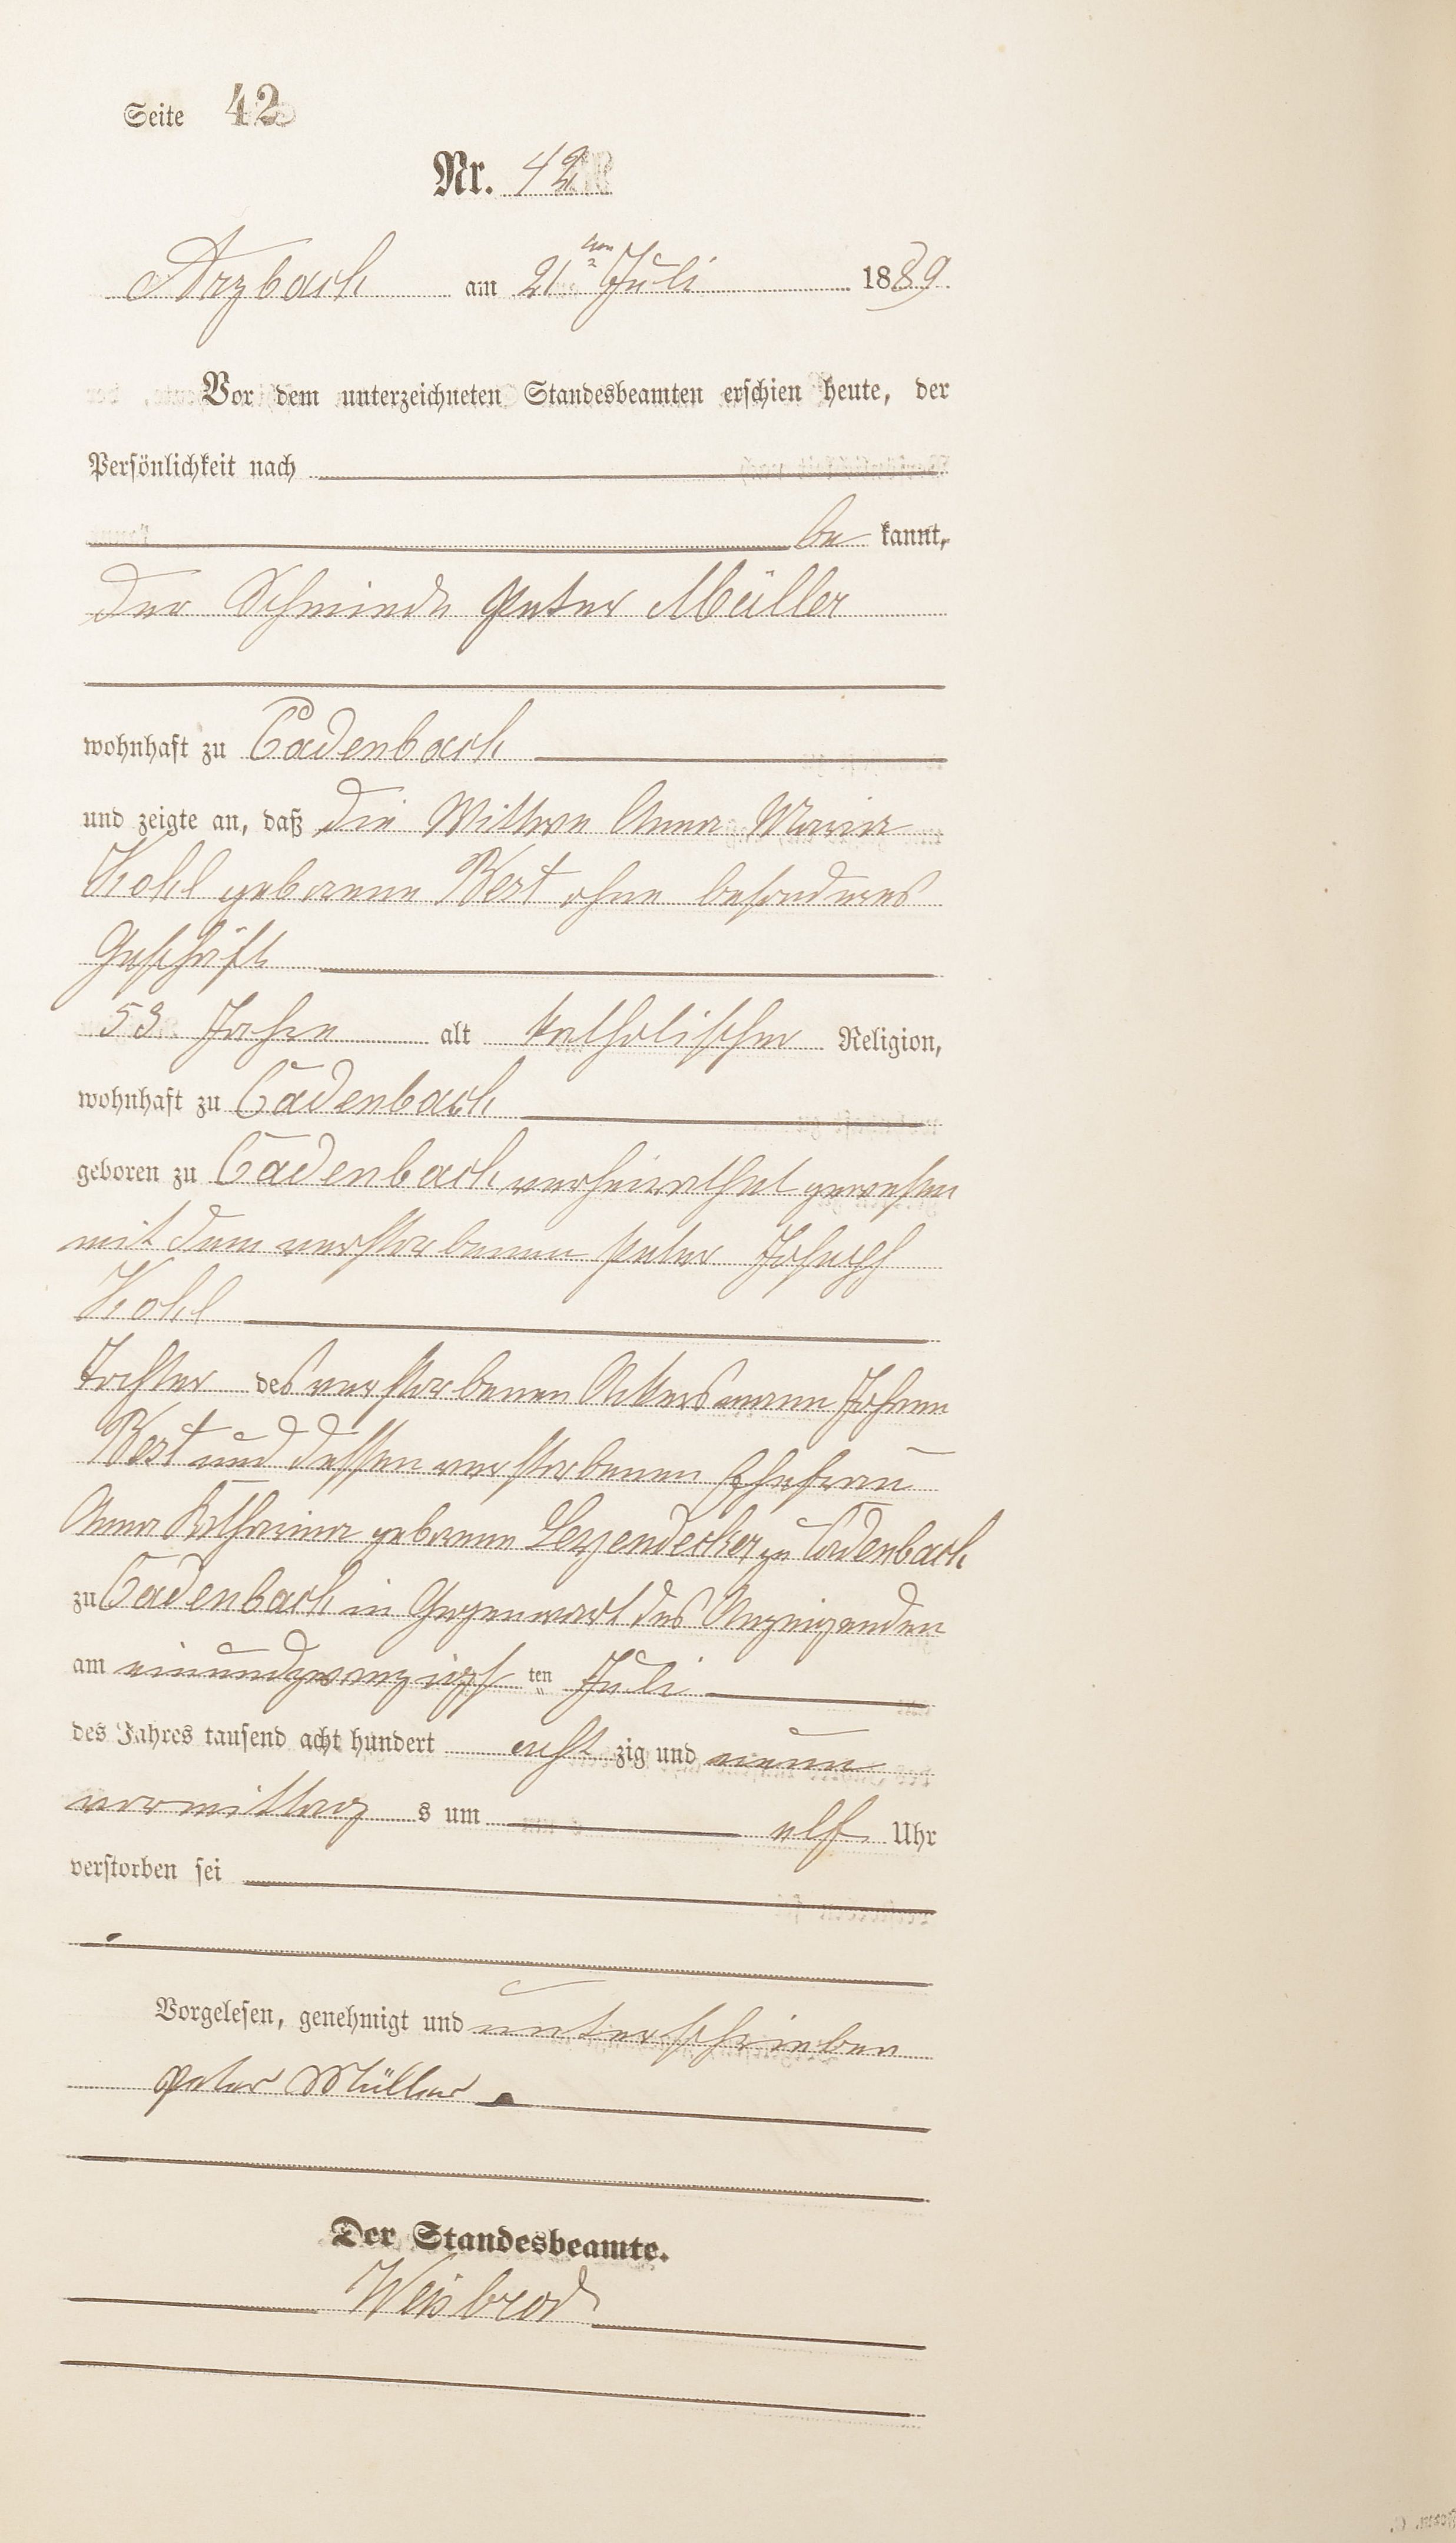 Seite 42
Nr. 42
Arzbach am 21ten Juli 1889.
Vor dem unterzeichneten Standesbeamten erschien heute, der
Persönlichkeit nach
be kannt,
der Schmiede Peter Müller
wohnhaft zu Cadenbach
und zeigte an, daß die Wittwe Anna Maria
Kohl geborene Best ohne besonderes
Geschäft
53 Jahre alt katholischer Religion,
wohnhaft zu Cadenbach
geboren zu Cadenbach verheirathet gewesen
mit dem verstorbenen Peter Joseph
Kohl
Tochter des verstorbenen Ackersmann Johann
Best und dessen verstorbenen Ehefrau
Anna Katharina geborene Leyendecker zu Cadenbach
zu Cadenbach in Gegenwart des Anzeigenden
am einundzwanzigst ten Juli
des Jahres tausend acht hundert acht zig und neun
vormittag s um elf Uhr
verstorben sei
Vorgelesen, genehmigt und unterschrieben
Peter Müller
Der Standesbeamte.
Weisbrod